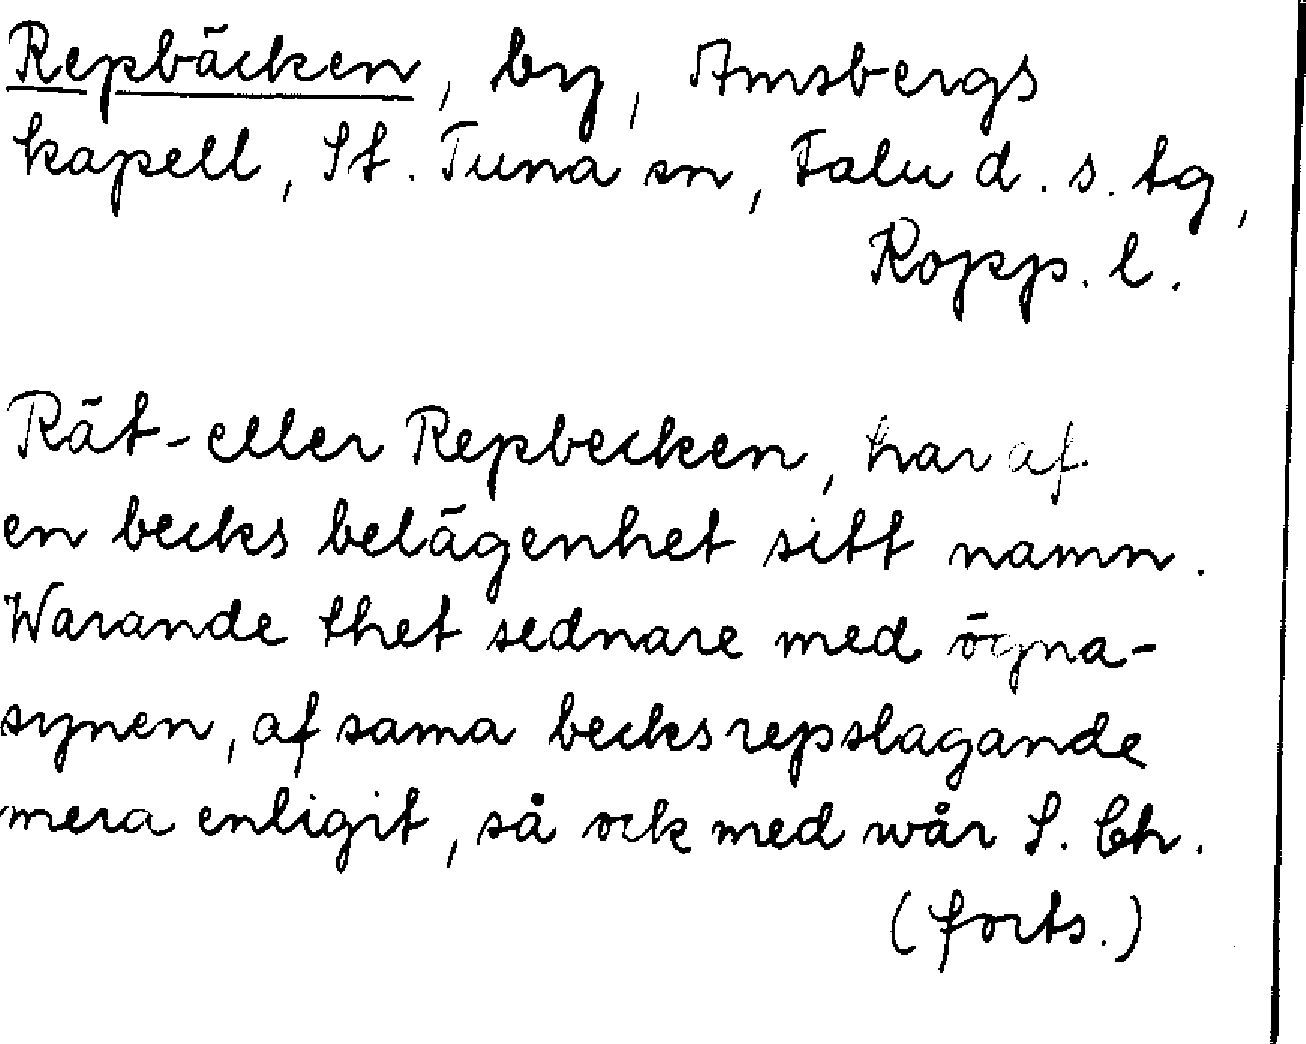 Repbäcken, by, Amsbergs
kapell, St. Tuna sn, Falu d. s. tg,
Kopp. l.
Rät- eller Repbecken, har af
en becks belägenhet sitt namn.
Warande thet sednare med ögna-
synen, af sama becks repslagande
mera enligit, så ock med wår S. Ch.
(forts.)